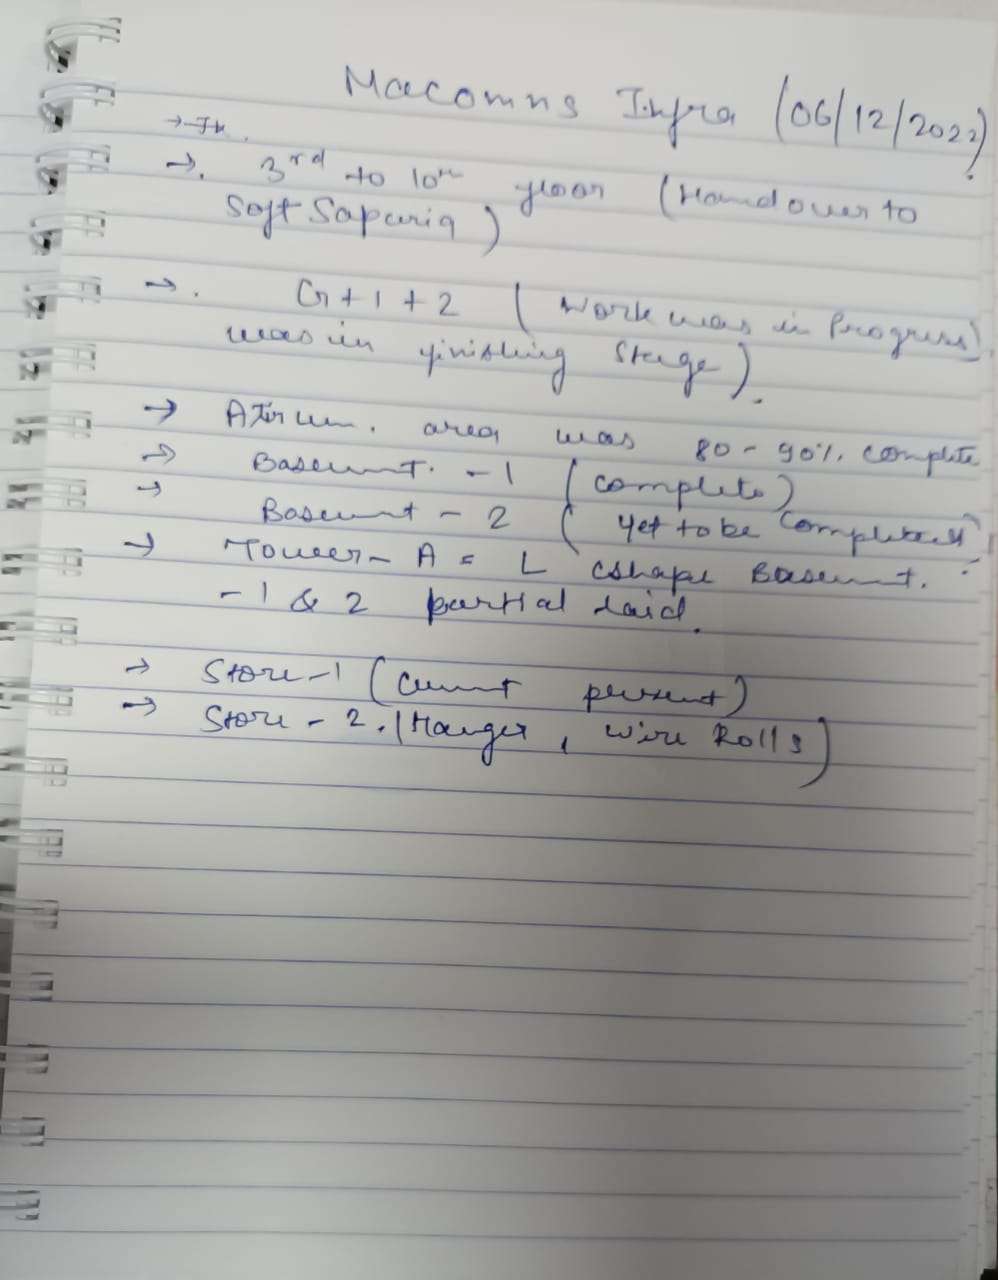 Macomns Infra (06/12/2022)
→ 3rd to 10th floor (Handover to
Soft Sapuria)
→. G+1+2 (Work was in Progress)
was in finishing Stage).
→ Atirum. area was 80-90%. complete
→ Basement. -1 (complete)
→ Basement - 2 (Yet to be Completed)
→ Tower- A = L cshape Basement.
-1 & 2 partial laid.
→ Store-1 (Cement present)
→ Store - 2. (Hanger, wire Rolls)